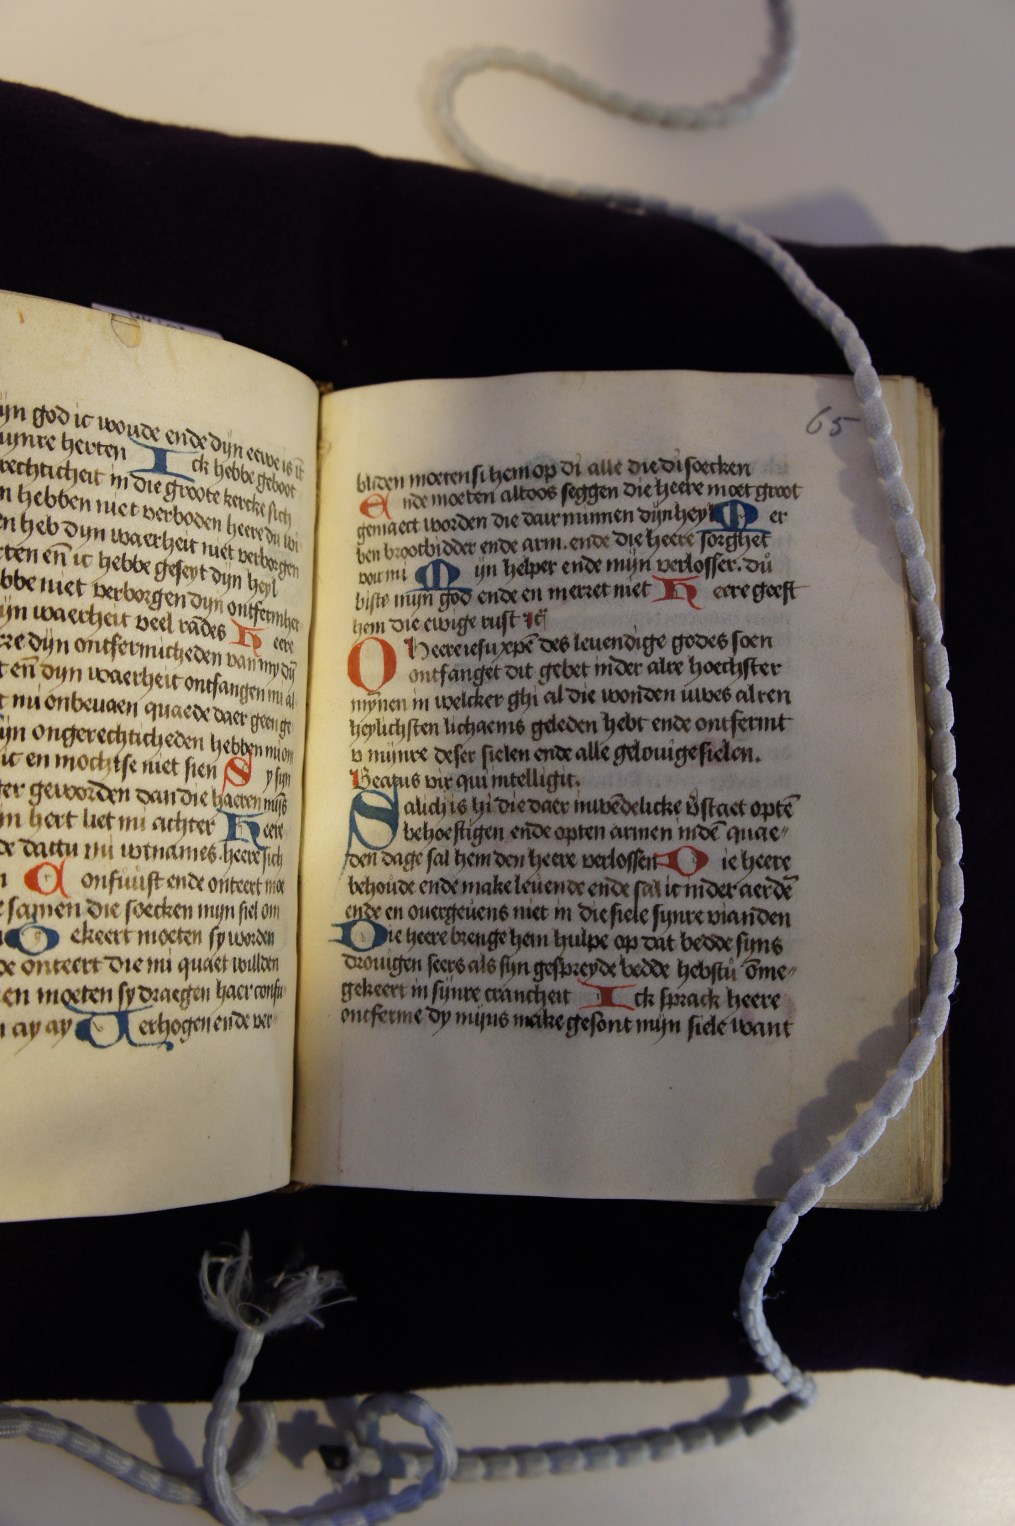 ijn god ic woude ende dijn eewe is īt
mijnre herten Ick hebbe geboot
rechticheit in die groote kercke sich
n hebben niet verboden heere du wi
en heb dijn waerheit niet verborgen
rten eñ ic hebbe geseyt dijn heyl
bbe niet verborgen dijn ontfermher
ijn waerheit veel rādes Heere
re dijn ontfermicheden van my dijn
t eñ dijn waerheit ontfangen mi al
t mi onbeuaen quaede daer geen ge
ijn ongerechticheden hebben mi om
ic en mochtse niet sien Sy sijn
er geworden dan die haeren mijs
n hert liet mi achter Heere
de dattu mi wtnames. heere sich
n Confuust ende onteert moe
e samen die soecken mijn siel om
Bekeert moeten sy worden
de onteert die mi quaet willden
en moeten sy draegen haer confu
n ay ay Verhogen ende ver
65
bliden moeten si hem op di alle die di soecken
Ende moeten altoos seggen die heere moet groot
gemaect worden die daer minnen dijn heyl Mer
ben brootbidder ende arm. ende die heere sorghet
vor mi Mijn helper ende mijn verlosser. dū
biste mijn god ende en merret niet Heere geeft
hem die ewige rust
O heere iesu xpē des leuendige godes soen
ontfanget dit gebet inder alre hoechster
mynen in welcker ghi al die wonden uwes alren
heylichsten lichaems geleden hebt ende ontfermt
v mijnre deser sielen ende alle gelouige sielen.
Beatus vir qui intelligit.
Salich is hi die daer inwēdelicke v̄staet optē
behoeftigen ende opten armen indē quae〃
den dage sal hem den heere verlossen Die heere
behoude ende make leuende ende salich inder aerdē
ende en ouergeuens niet in die siele synre vianden
Die heere brenge hem hulpe op dat bedde sijns
drouigen seers als sijn gespreyde bedde hebstū ōme〃
gekeert in sijnre crancheit Ick sprack heere
ontferme dy mijns make gesont mijn siele want